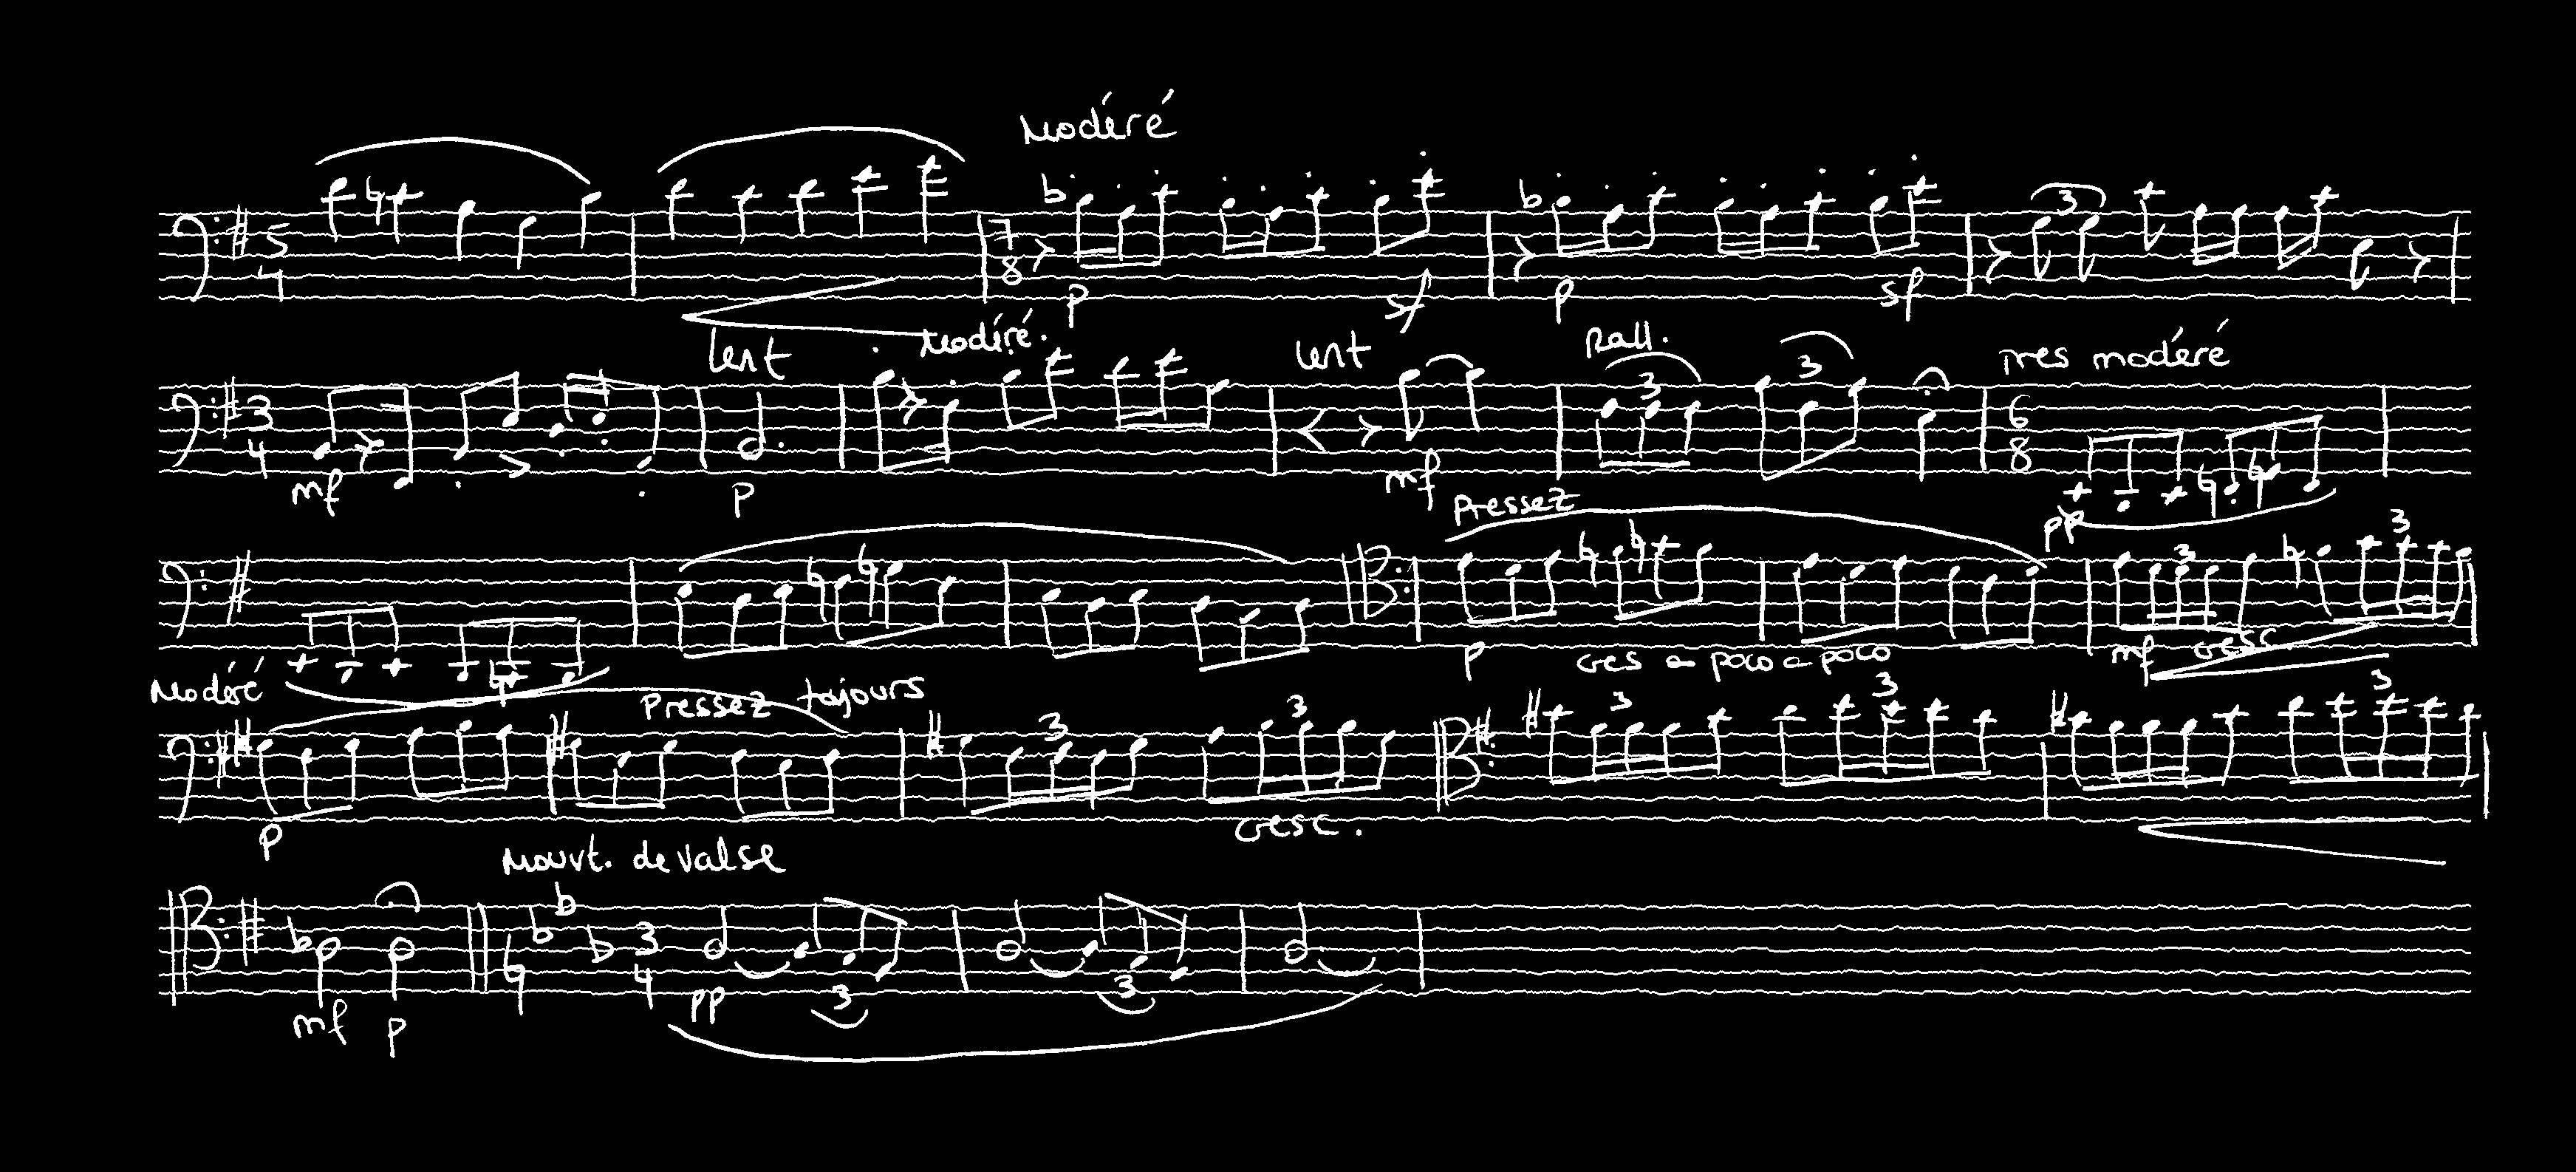 Modéré
5
4
7
8
3
p
sf
p
sf
Lent
Modéré.
Lent
Rall.
3
3
Tres modéré
3
4
6
8
mf
p
mf
pp
Pressez
3
3
p
cres a poco a poco
mf
cresc
Modéré
Pressez toujours
3
3
3
3
3
p
cresc.
Mouvt. de valse
3
4
mf
p
pp
3
3